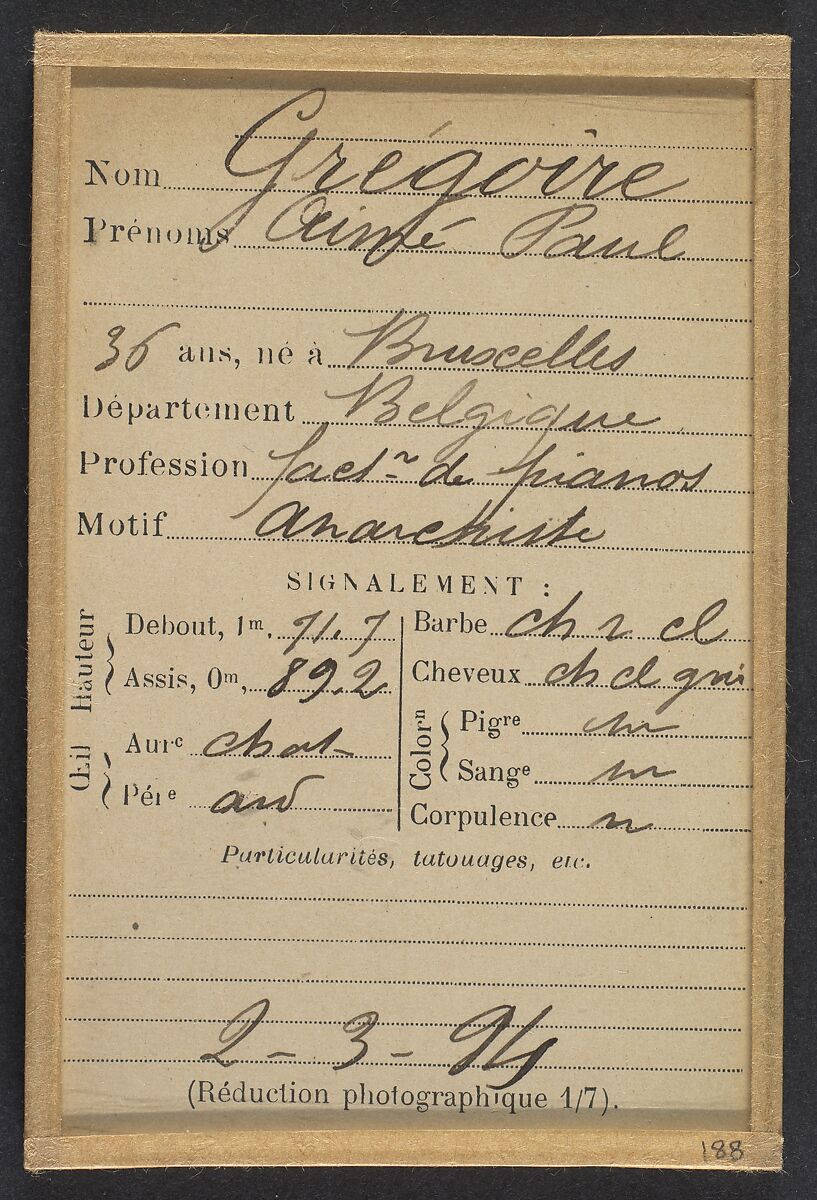 Nom Grégoire
Prénoms Aimé Paul
36 ans, né à Bruxelles
Département Belgique
Profession fact.r de pianos
Motif anarchiste
SIGNALEMENT :
Hauteur
Debout, 1m, 71.7
Assis, 0m, 89.2
Œil
Aurc chat
Périe ard
Barbe ch r cl
Cheveux ch cl gris
Colorn
Pigre m
Sange m
Corpulence n
Particularités, tatouages, etc.
2 - 3 - 94
(Réduction photographique 1/7).
188